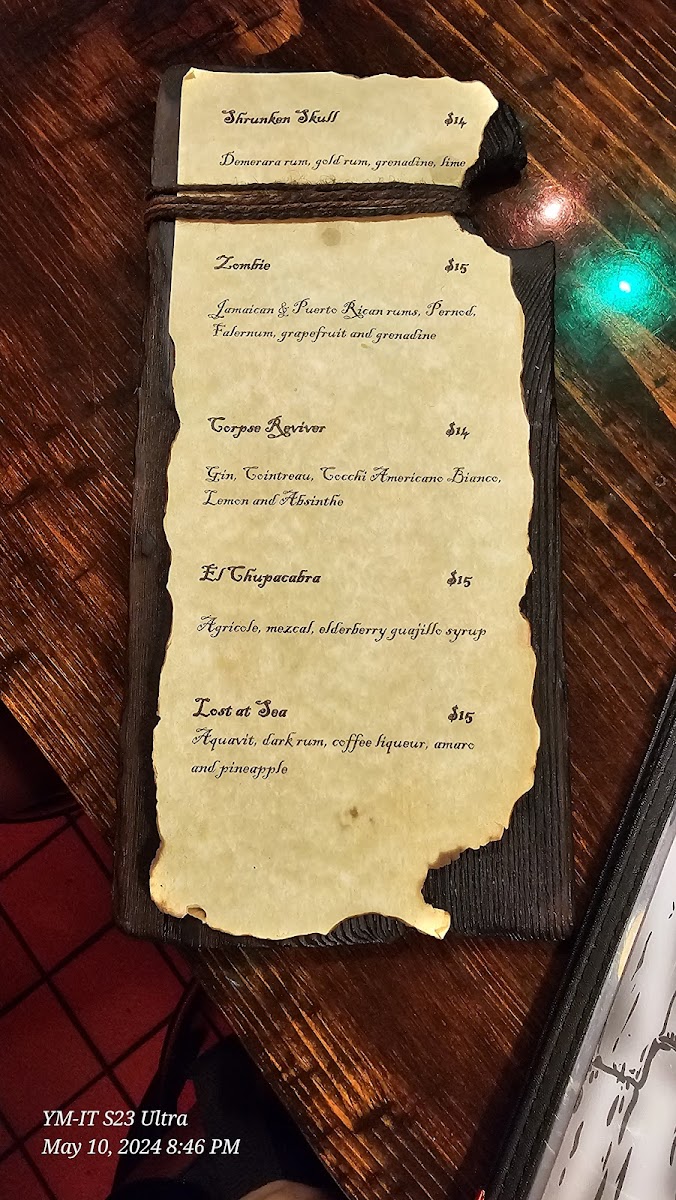 Shrunken Skull $14
Demerara rum, gold rum, grenadine, lime
Zombie $15
Jamaican & Puerto Rican rums, Pernod,
Falernum, grapefruit and grenadine
Corpse Reviver $14
Gin, Cointreau, Cocchi Americano Bianco,
Lemon and Absinthe
El Chupacabra $15
Agricole, mezcal, elderberry guajillo syrup
Lost at Sea $15
Aquavit, dark rum, coffee liqueur, amaro
and pineapple
YM-IT S23 Ultra
May 10, 2024 8:46 PM